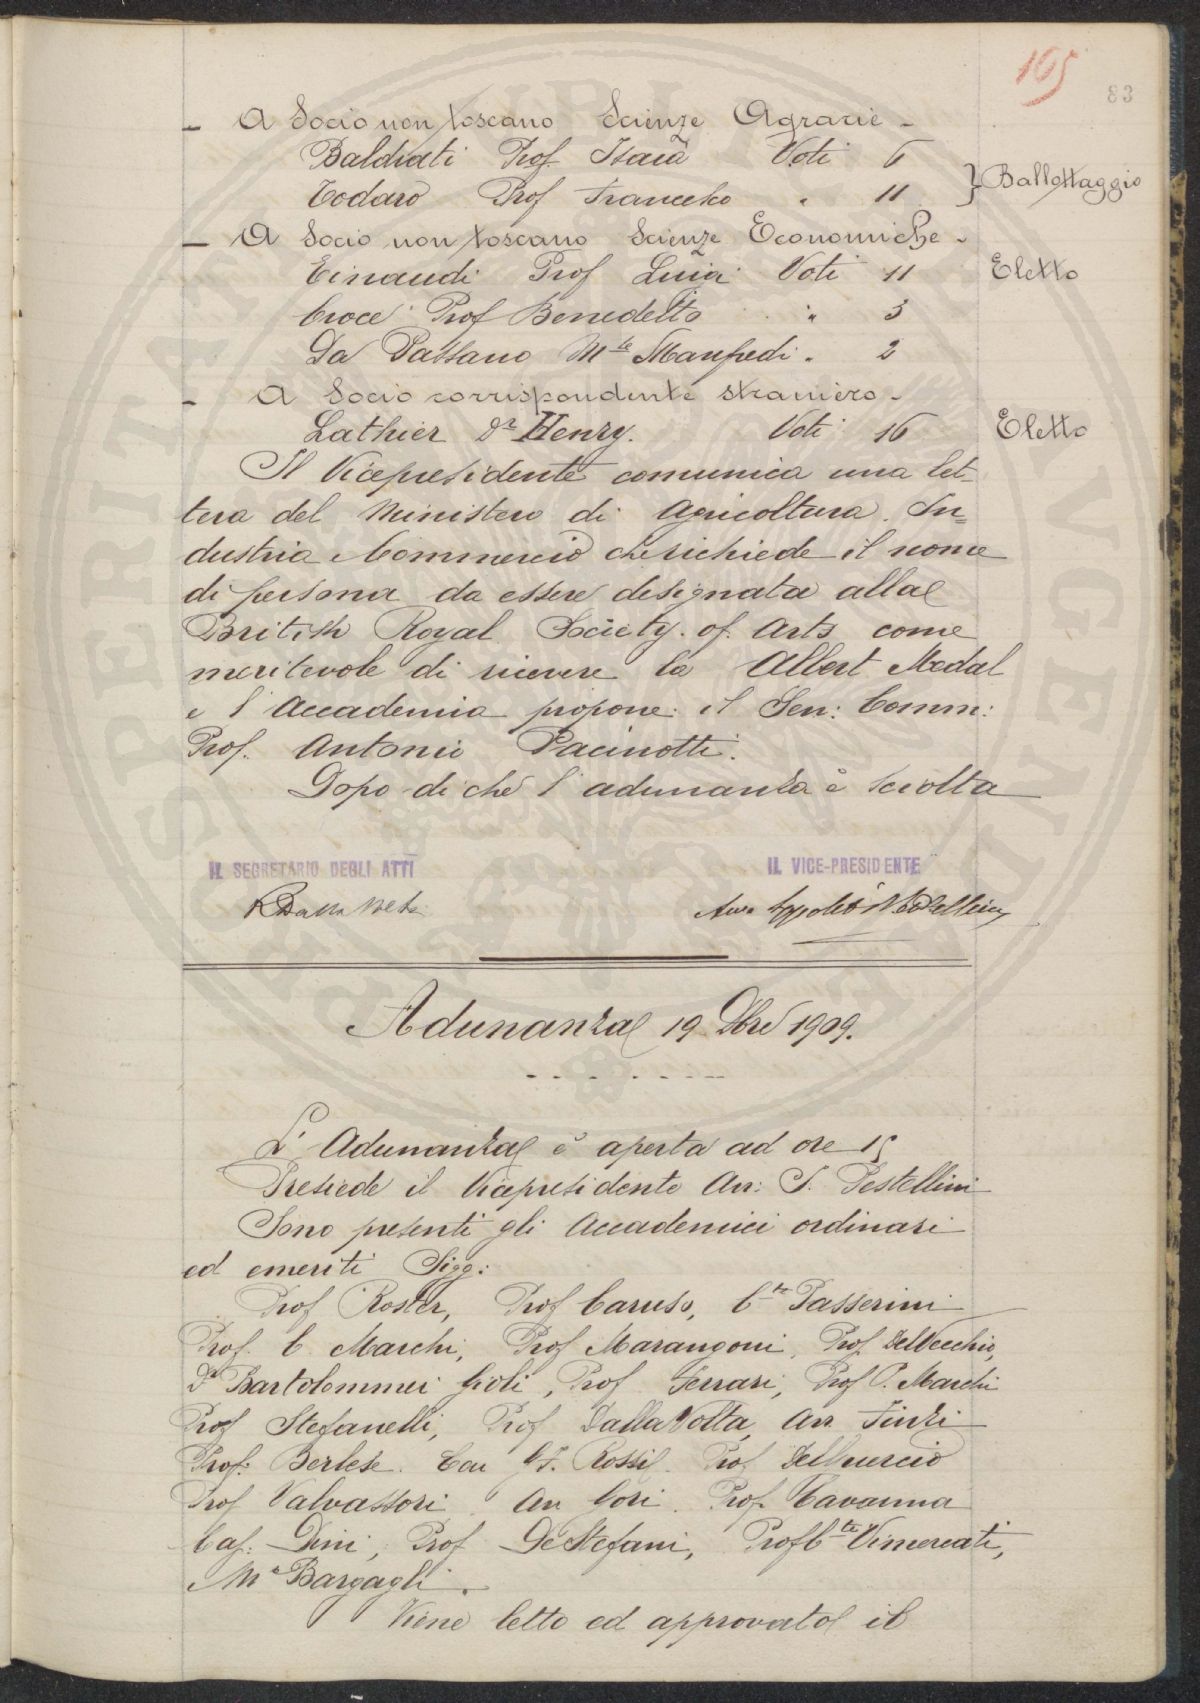 165
83
– A Socio non toscano Scienze Agrarie –
Baldrati Prof. Isaia Voti 6
Todaro Prof Francesco " 11 } Ballottaggio
– A Socio non toscano Scienze Economiche –
Einaudi Prof Luigi Voti 11 Eletto
Croce Prof Benedetto " 3
Da Passano Mse Manfredi " 2
– A Socio corrispondente straniero –
Lathier Dr Henry. Voti 16 Eletto
Il Vicepresidente comunica una let-
tera del Ministero di Agricoltura In=
dustria e Commercio che richiede il nome
di persona da essere designata alla
British Royal Society of Arts come
meritevole di ricevere la Albert Medal
e l'Accademia propone il Sen: Comm:
Prof. Antonio Pacinotti.
Dopo di che l'adunanza è sciolta
IL SEGRETARIO DEGLI ATTI IL VICE-PRESIDENTE
Adunanza 19 Dbre 1909.
L'Adunanza è aperta ad ore 15
Presiede il Vicepresidente Avv: I. Pestellini
Sono presenti gli Accademici ordinari
ed emeriti Sigg:
Prof Roster, Prof Caruso, Cte Passerini
Prof. C. Marchi, Prof Marangoni, Prof. Del Vecchio,
Dr Bartolommei Gioli, Prof. Ferrari, Prof P. Marchi
Prof Stefanelli, Prof Dalla Volta, Avv. Finzi
Prof: Berlese. Cav F. Rossi. Prof. Del Guercio
Prof Valvassori. Avv Gori. Prof. Cavanna
Cap: Dini, Prof De Stefani, Prof Cte Vimercati,
Me Bargagli.
Viene letto ed approvato il